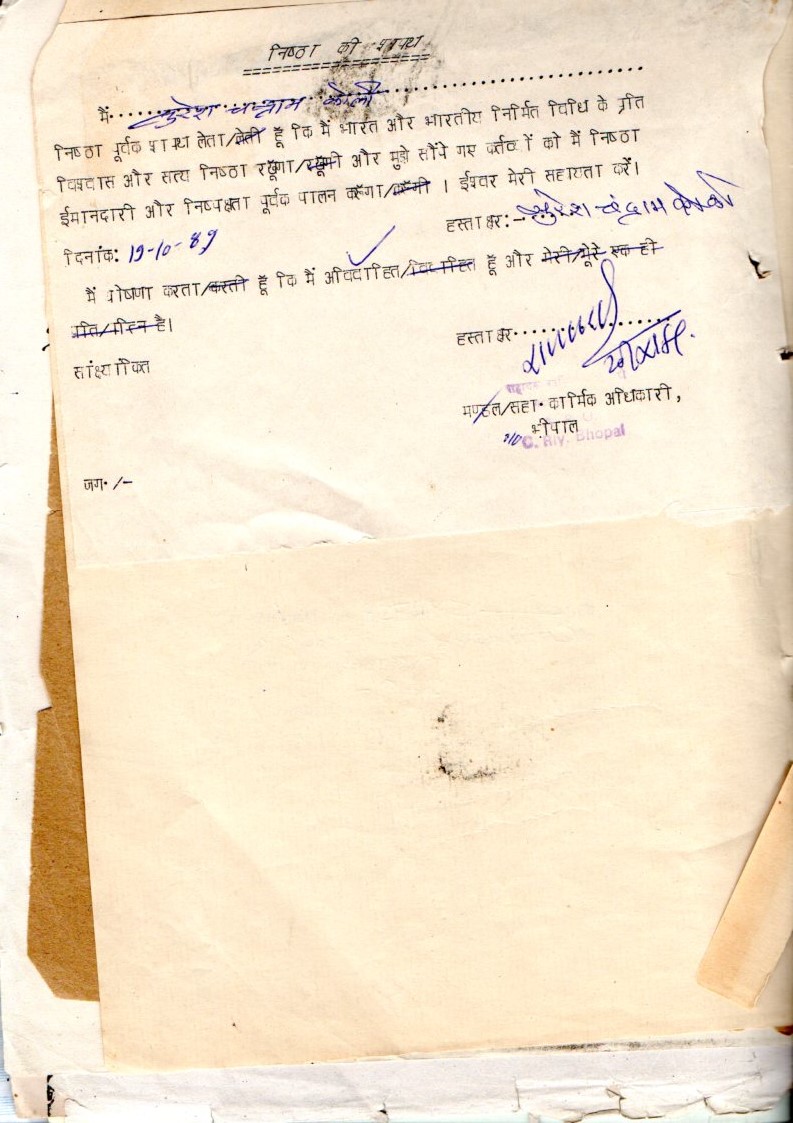 निष्ठा की शपथ
मैं..... सुरेश चन्द्राम कोली.....
निष्ठा पूर्वक शपथ लेता/लेती हूँ कि मैं भारत और भारतीय निर्मित विधि के प्रति
विश्वास और सत्य निष्ठा रखूँगा/रखूँगी और मुझे सौंपे गए कर्तव्यों को मैं निष्ठा
ईमानदारी और निष्पक्षता पूर्वक पालन करूँगा/करूँगी । ईश्वर मेरी सहायता करें।
हस्ताक्षर:- सुरेश चंद्राम कोली
दिनांक: 19-10-89
मैं घोषणा करता/करती हूँ कि मैं अविवाहित/विवाहित हूँ और मेरी/मेरे एक ही
पति/पत्नि है।
हस्ताक्षर.....
सांक्ष्यांकित
मण्डल/सहा. कार्मिक अधिकारी,
भोपाल
C. Rly. Bhopal
जग. /-